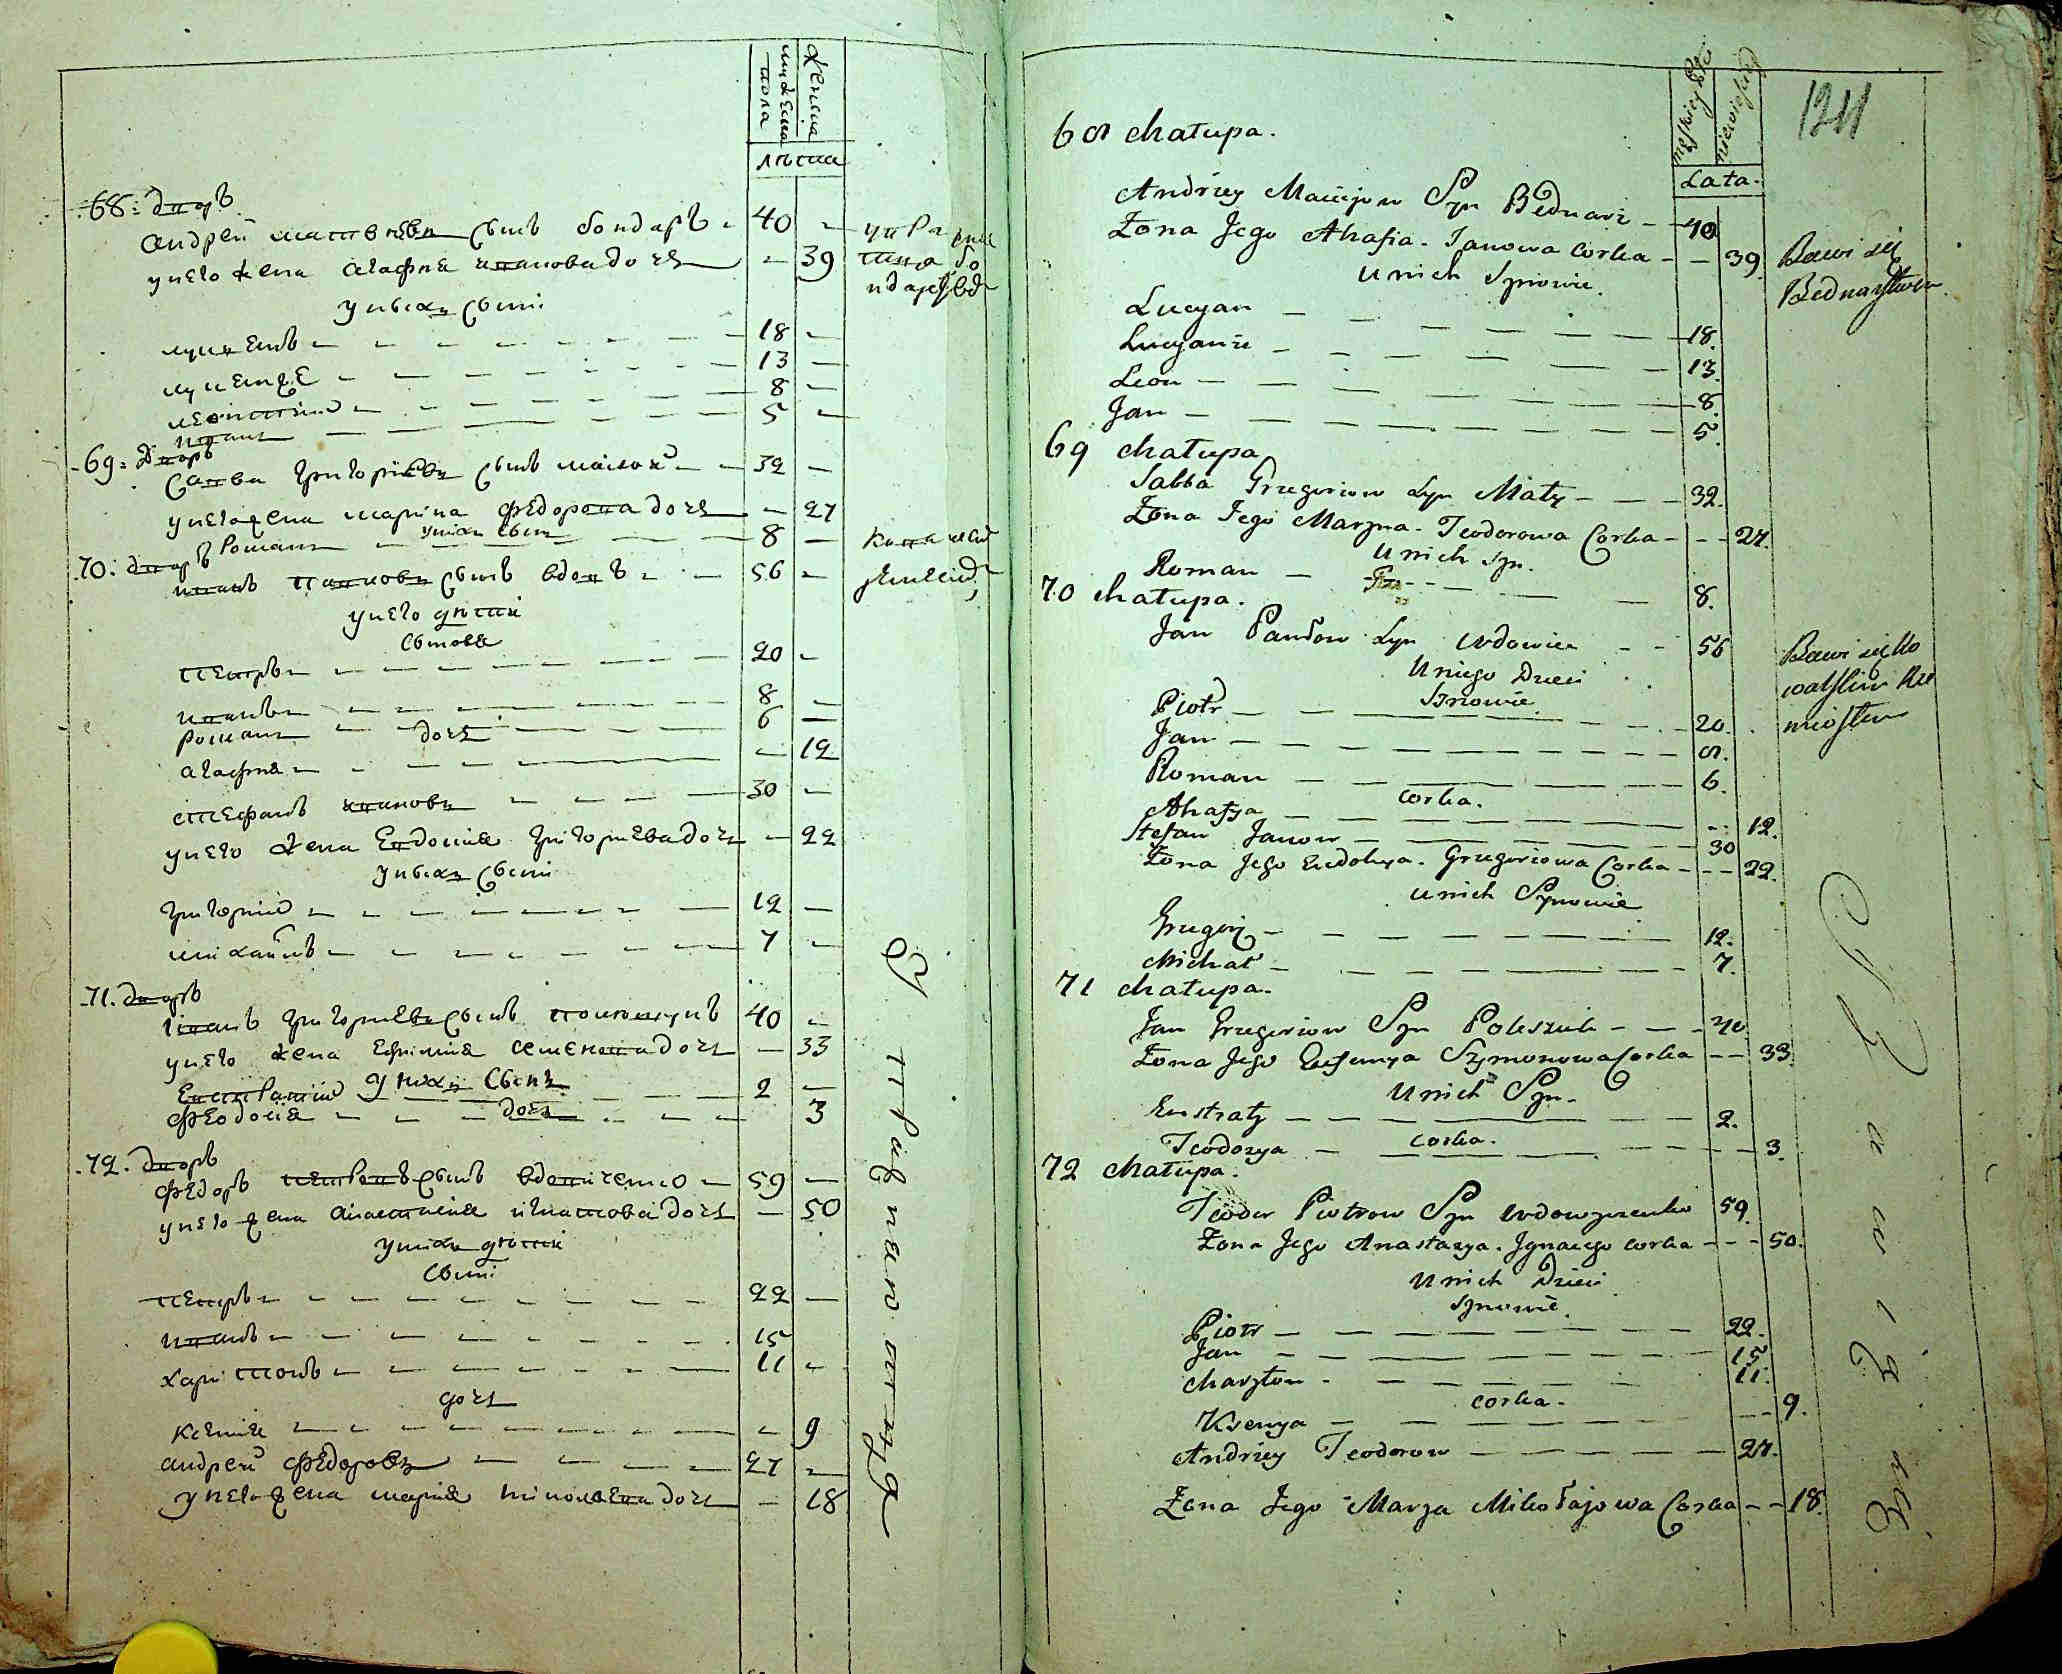 мужеска пола
женска
лѣта
68: дворъ
андрей матвѣевъ сынъ бондаръ 40
у него жена агафия иванова дочь 39
у нихъ сыни
лукянъ 18
лукенце 13
леонтий 8
иванъ 5
69: дворъ
савва григориевъ сынъ малой 32
у него жена марина федорова дочь 27
у них сынъ
романъ 8
70: дворъ
иванъ павловъ сынъ вдовъ 56
у него дѣти
сынове
петръ 20
иванъ 8
романъ 6
дочь
агафия 12
стефанъ ивановъ 30
у него жена евдокия григориева дочь 22
у нихъ сыни
григорий 12
михайлъ 7
71. дворъ
иванъ григориевъ сынъ 40
у него жена ефимия семенова дочь 33
у нихъ сынъ
евстратий 2
дочь
феодосия 3
72. дворъ
федоръ петровъ сынъ вдовиченко 59
у него жена анастасия игнатова дочь 50
у нихъ дѣти
сыни
петръ 22
иванъ 15
харитонъ 11
дочь
ксения 9
андрей федоровъ 27
у него жена мария николаева дочь 18
124
męskiey Płci
niewieściey
Lata.
68 chałupa.
Andrzey Maciejow Syn Bednarz 40
Żona Jego Ahafia Janowa Corka 39.
U nich Synowie.
Bawi się
Bednarstwem
Lucyan 18.
Lucyanże 13.
Leon 8.
Jan 5.
69 chałupa
Sabba Grzegoriow Syn Mały 32.
Żona Jego Maryna Teodorowa Corka 27.
U nich Syn.
Roman 8.
70 chałupa.
Jan Pawłow Syn wdowiec 56
U niego Dzieci
Synowie.
Bawi się Ko
walskim Rze
miosłem
Piotr 20.
Jan 8.
Roman 6.
corka.
Ahafya 12.
Stefan Janow 30
Żona Jego Eudokya Grzegoriowa Corka 22.
U nich Synowie
Grzegorz 12.
Michał 7.
71 chałupa.
Jan Grzegoriow Syn Poleszuk 40
Żona Jego Eufemya Szymonowa Corka 33.
U nich Syn.
Eustraty 2.
corka.
Teodozya 3.
72 chałupa.
Teodor Piotrow Syn wdowyczenko 59.
Żona Jego Anastazya Jgnacego corka 50.
U nich Dzieci
Synowie.
Piotr 22.
Jan 15.
Charyton 11.
corka.
Ksenya 9.
Andrzey Teodorow 27.
Żona Jego Marya Mikołajowa Corka 18.